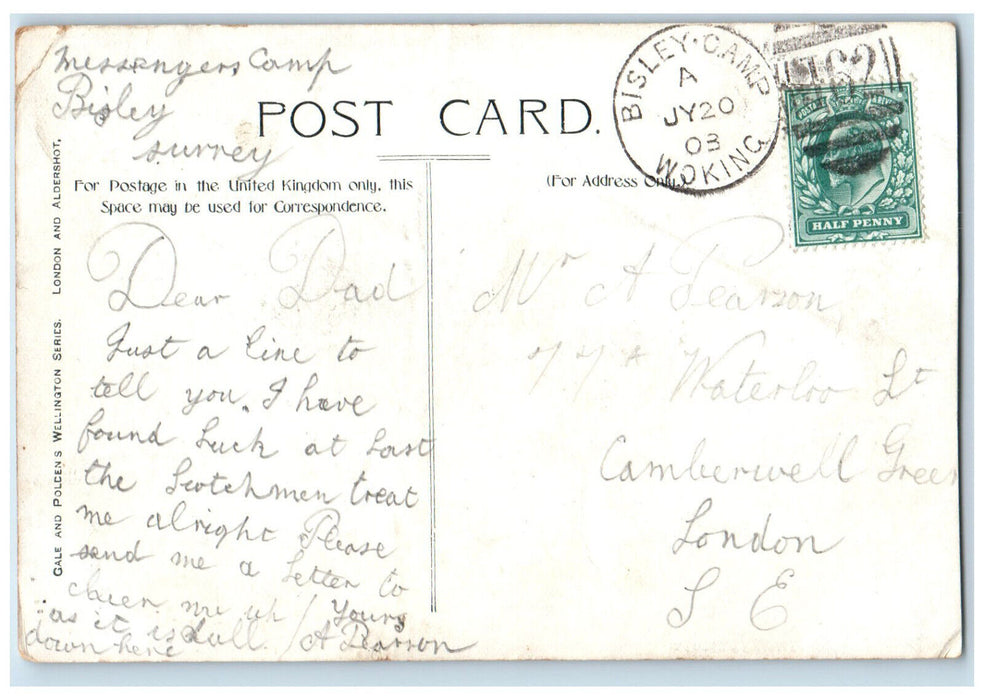 Messengers Camp
Bisley
Surrey
POST CARD.
For Postage in the United Kingdom only, this
Space may be used for Correspondence.
(For Address Only.)
GALE AND POLDEN'S WELLINGTON SERIES. LONDON AND ALDERSHOT.
BISLEY·CAMP
A
JY20
03
WOKING
HALF PENNY
Dear Dad
Just a line to
tell you. I have
found luck at last
the Scotchmen treat
me alright Please
send me a letter to
cheer me up
as it is dull.
down here
Yours
A Pearson
Mr A Pearson
Waterloo St
Camberwell Green
London
S E